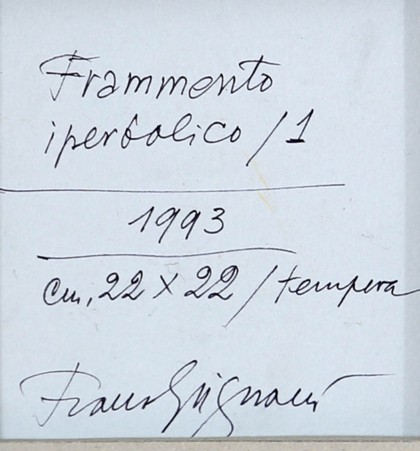 Frammento
iperbolico / 1
1993
cm. 22 x 22 / tempera
Franco Grignani